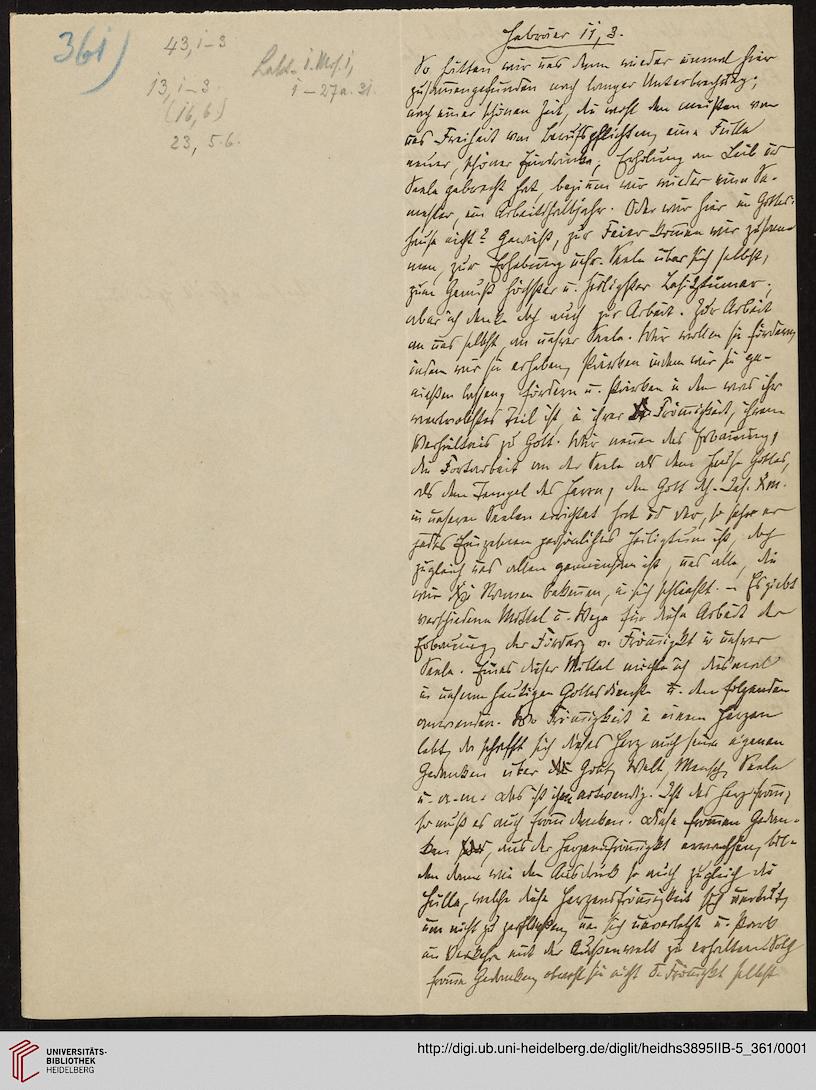 361)
43, 1–3
13, 1–3.
(16, 6)
23, 5.6.
1–27a. 31.
Hebräer 11, 3.
So hätten wir uns denn wieder einmal hier
zusammengefunden nach langer Unterbrechung;
nach einer schönen Zeit, die wohl den meisten von
uns Freiheit von Berufspflichten, eine Fülle
neuer, schöner Eindrücke, Erholung an Leib und
Seele gebracht hat, beginnen wir wieder ein Se-
mester, ein Arbeitshalbjahr. Oder wir hier im Gottes-
hause nicht? Gewiß, zur Feier kommen wir zusam-
men, zur Erhebung unsr. Seele über sich selbst,
zum Genuß höchster u. heiligster Besitztümer;
aber ich denke doch auch zur Arbeit. Zur Arbeit
an uns selbst, an unsrer Seele. Wir wollen sie fördern,
indem wir sie erheben, stärken indem wir sie ge-
nießen lassen, fördern u. stärken in dem was ihr
wertvollstes Teil ist, in ihrer Frömmigkeit, ihrem
Verhältnis zu Gott. Wir nennen das Erbauung,
die Fortarbeit an der Seele als dem Hause Gottes,
als dem Tempel des Herrn, den Gott
in unseren Seelen errichtet hat und der, so sehr er
jedes Einzelnen persönliches Heiligtum ist, doch
zugleich uns allen gemeinsam ist, uns alle, die
wir Namen bekennen, in sich schließt. – Es giebt
verschiedene Mittel u. Wege für diese Arbeit der
Erbauung, der Förderg. v. Frömmigkt in unsrer
Seele. Eines dieser Mittel möchte ich diesmal
in unserem heutigen Gottesdienste u. den folgenden
anwenden. Wo Frömmigkeit in einem Herzen
lebt, da schafft sich dieses Herz auch seine eigenen
Gedanken über Gott, Welt, Mensch, Seele
u. a. m. Das ist ihm notwendig. Ist das Herz fromm,
so muß es auch fromm denken. Diese frommen Gedan-
ken aus der Herzensfrömmigkt erwachsen, bil-
den dann wie den Ausdruck so auch zugleich die
Hülle, welche diese Herzensfrömmigkeit sich
um nicht zu zerfließen, um sich unverletzt u. stark
im Verkehr mit der Außenwelt zu erhalten. Solch
fromme Gedanken, obwohl sie nicht d. Frömmigkt selbst
UNIVERSITÄTS-
BIBLIOTHEK
HEIDELBERG
http://digi.ub.uni-heidelberg.de/diglit/heidhs3895IIB-5_361/0001